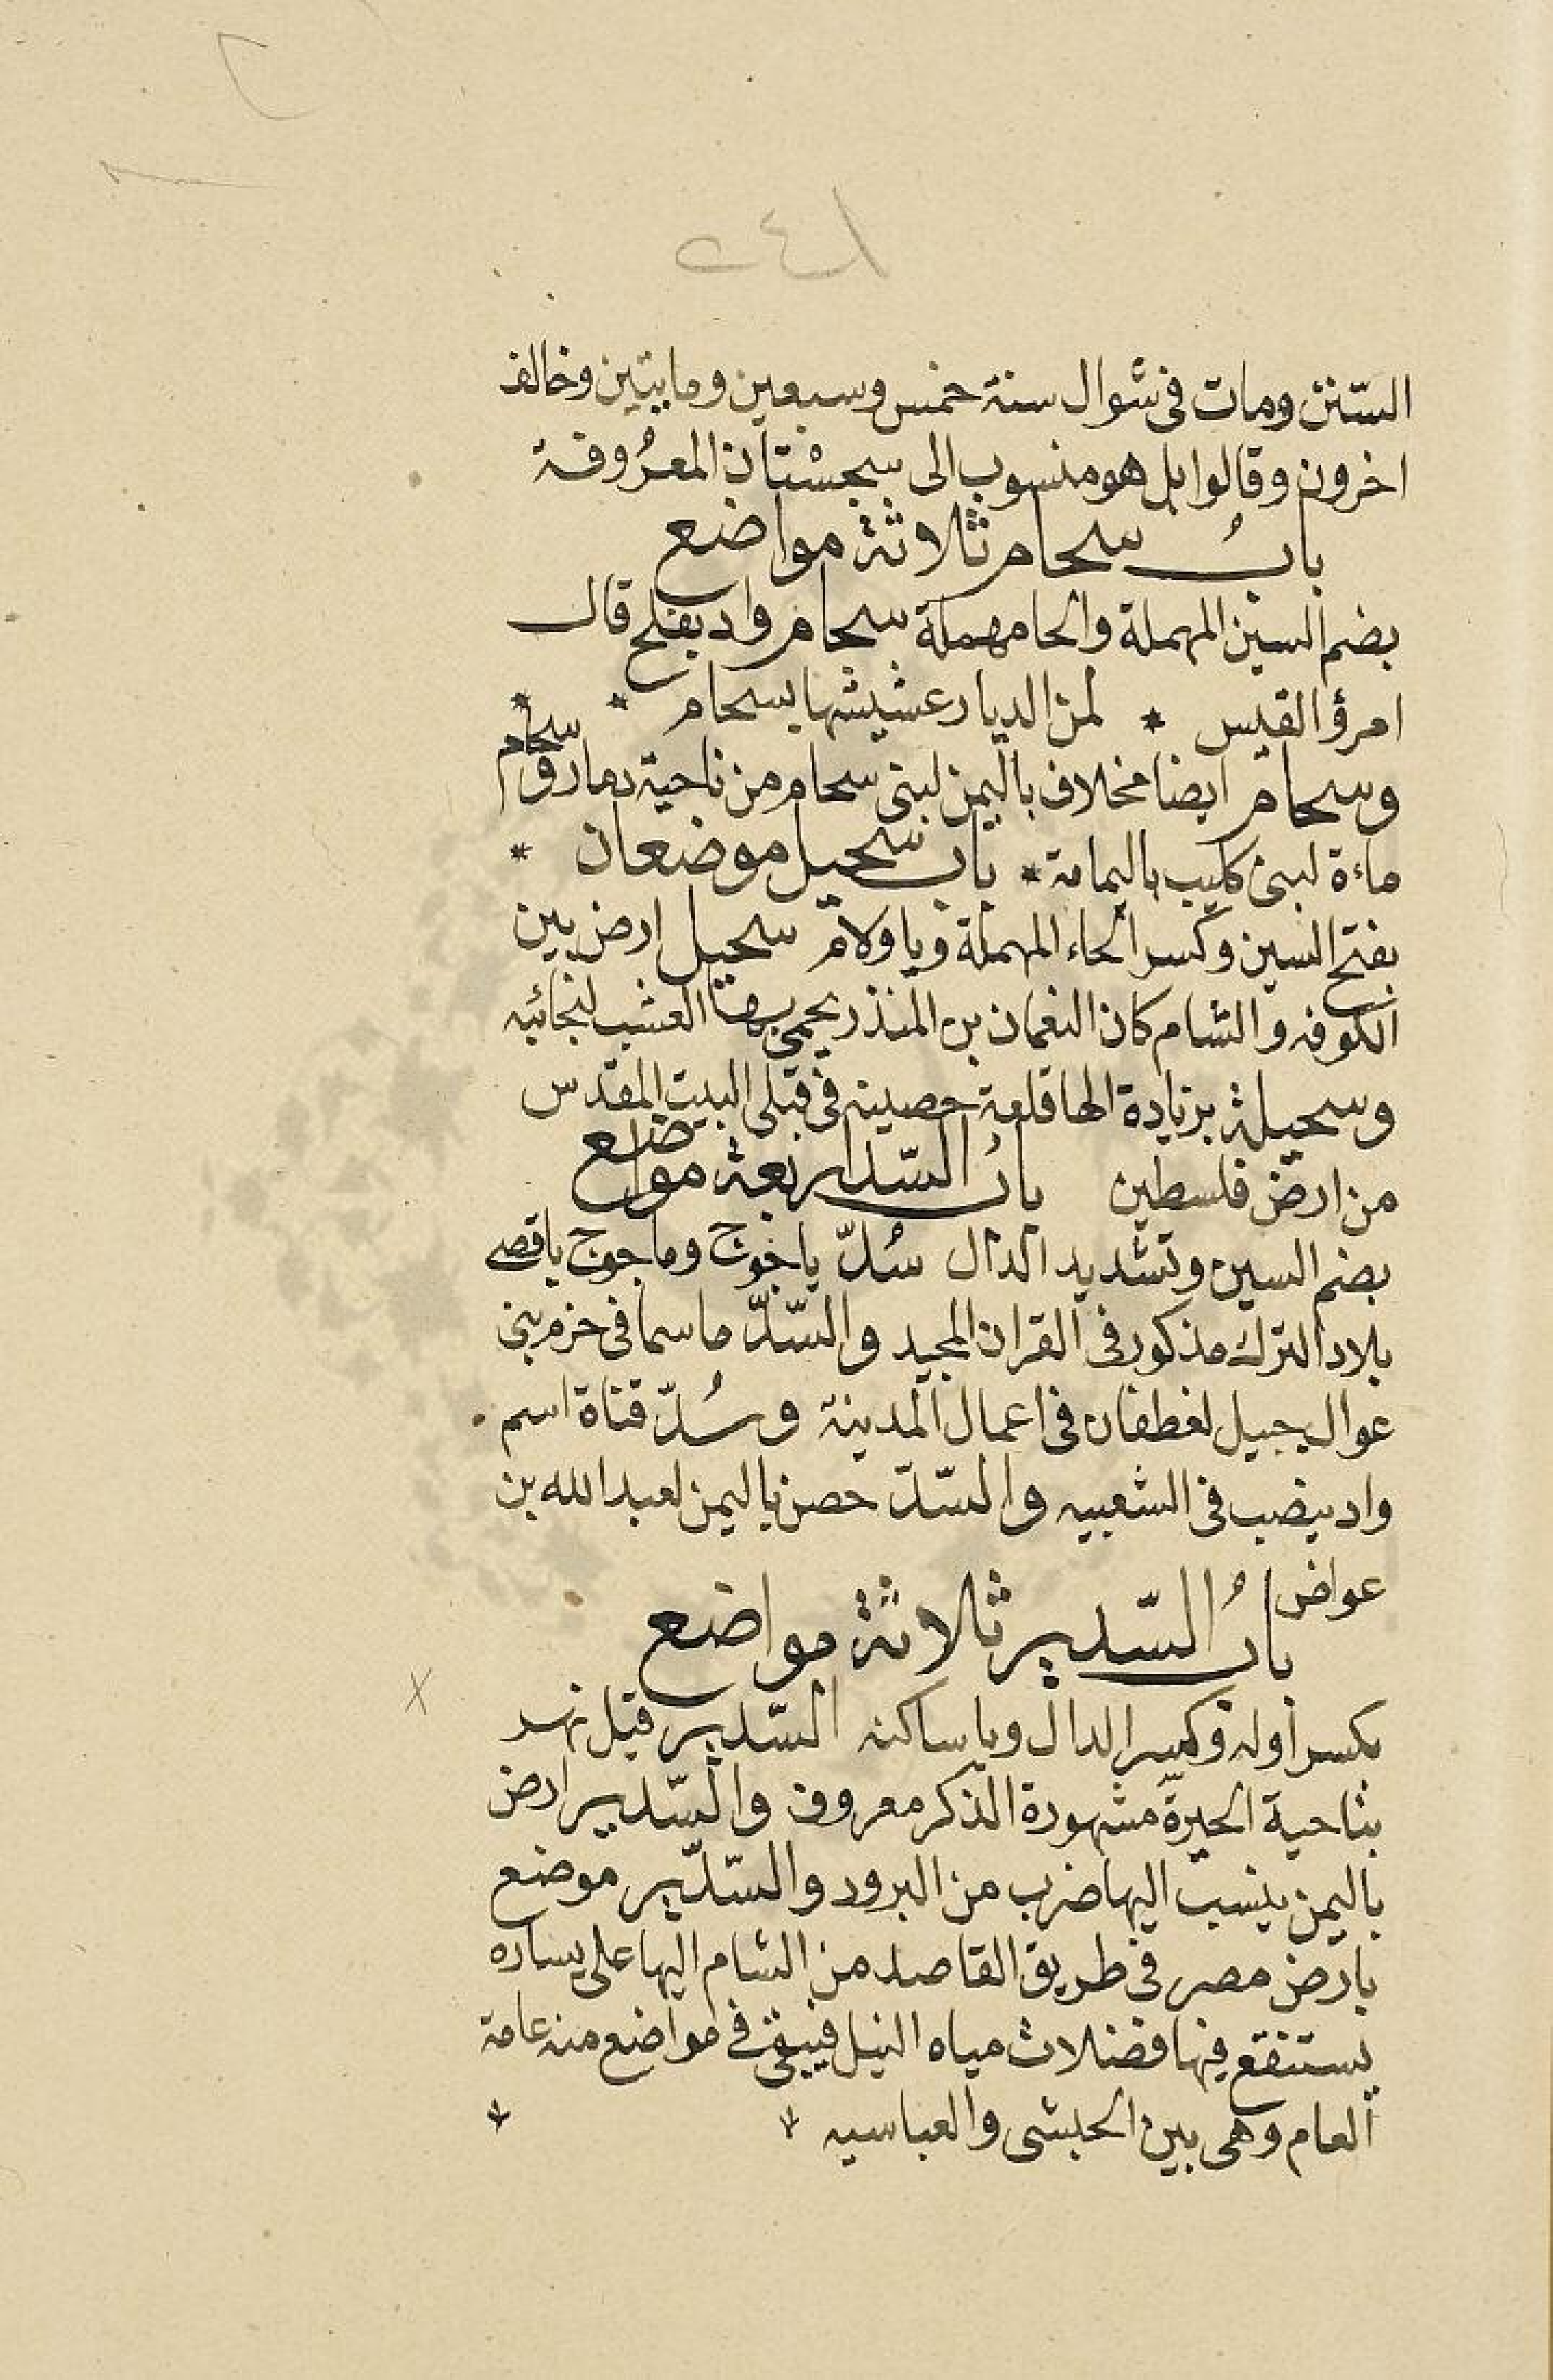 ٢٤١
السّنن ومات فى شوال سنة خمس وسبعين ومايتين وخالف
اخرون وقالوا بل هو منسوب الى سجستان المعرُوفة
بابُ سحام ثلاثة مواضع
بضم السين المهملة والحا مهملة سحام واد بفلج قال
امرؤ القيس * لمن الديار عشيشها بسحام * *
وسحام ايضا مخلاف باليمن لبنى سحام من ناحية دمار وسحام
ماءة لبنى كليب باليمامة * باب سحيل موضعان *
بفتح السين وكسر الحاء المهملة ويا ولام سحيل ارض بين
الكوفه والشام كان النعمان بن المنذر يحمى بها العشب لنجائبه
وسحيلة بزيادة الها قلعة حصينه فى قبلى البيت المقدس
من ارض فلسطين بابُ السّد اربعة مواضع
بضم السين وتشديد الدال سُدّ ياجوج وماجوج باقصى
بلاد الترك مذكور فى القران المجيد والسّدّ ما سما فى حزم بنى
عوال جبيل لغطفان فى اعمال المدينة وسُدّ قناة اسم
واد ينصب فى الشعبيه والسّدّ حصن باليمن لعبد الله بن
عواض
بابُ السّدير ثلاثة مواضع
بكسر اوله وكسر الدال ويا ساكنه السّدير قيل نهر
بناحية الحيرة مشهورة الذكر معروف والسّدير ارض
باليمن ينسب اليها ضرب من البرود والسّدير موضع
بارض مصر فى طريق القاصد من الشام اليها على يساره
يستنقع فيها فضلات مياه النيل فيبقى فى مواضع منه عامة
العام وهى بين الحبشى والعباسيه